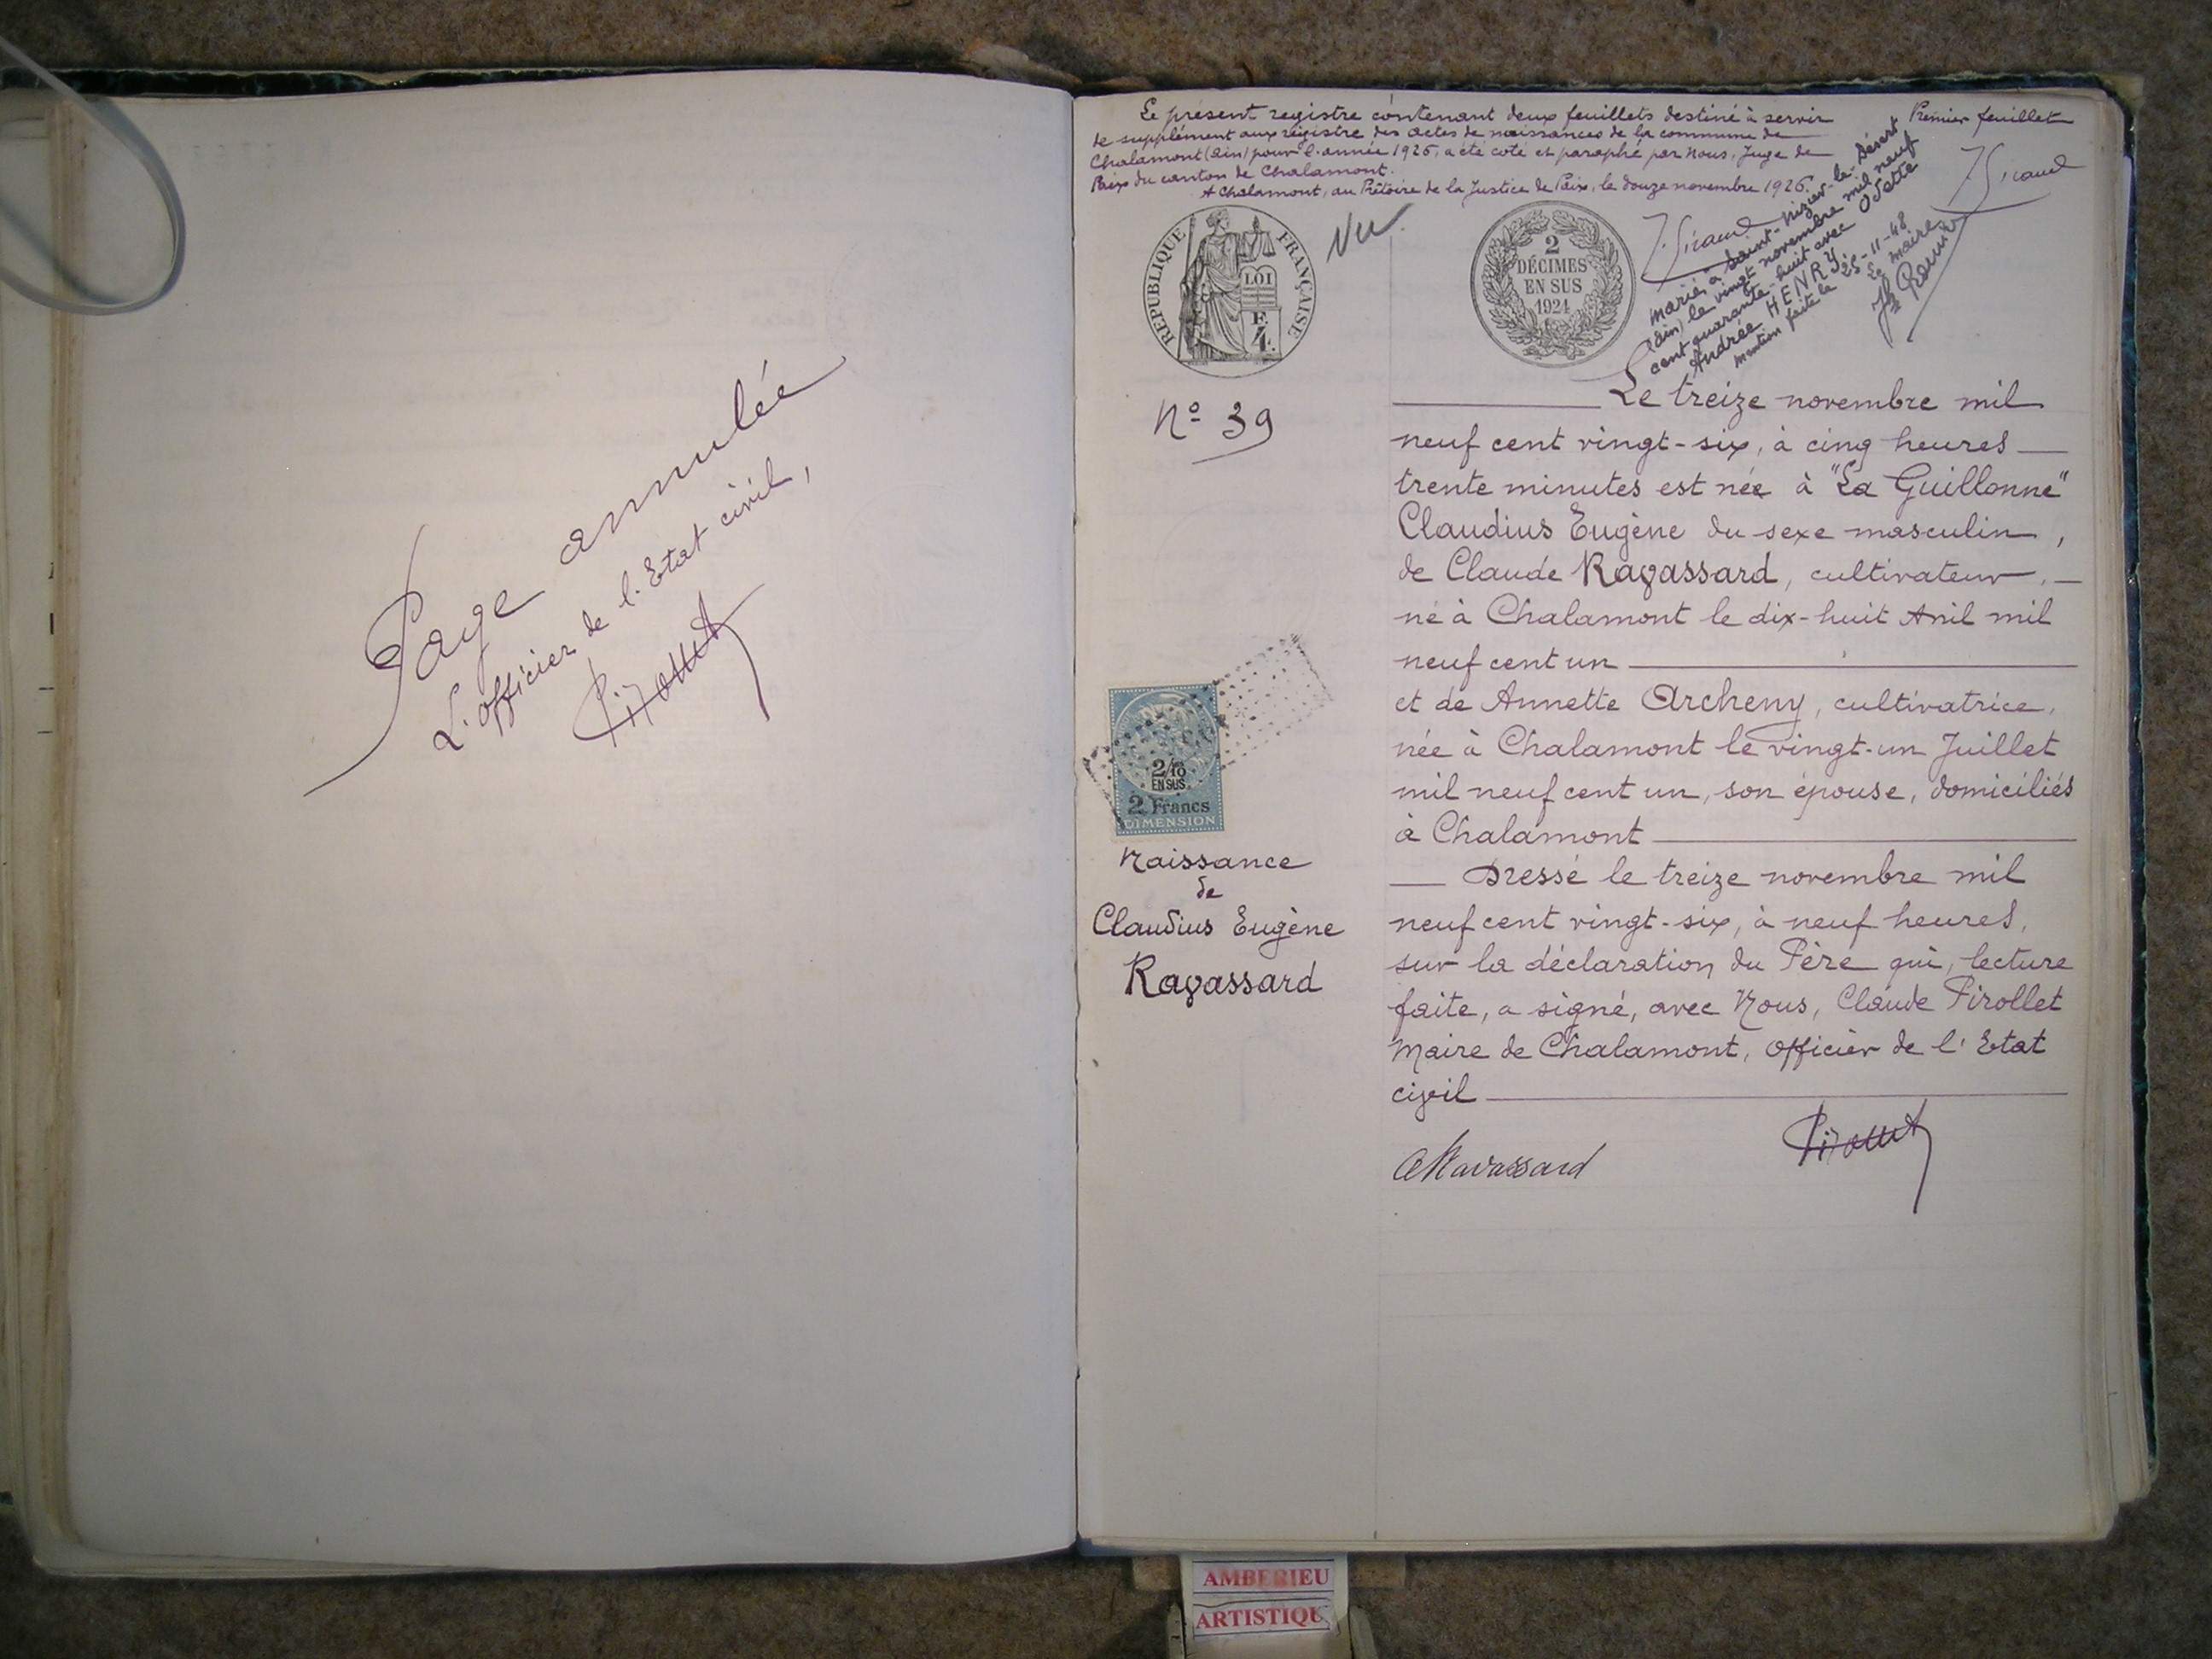 Page annulée
L'officier de l'Etat civil,
Le présent registre contenant deux feuillets destiné à servir
de supplément aux registre des actes de naissances de la commune de
Chalamont (Ain) pour l'année 1926, a été coté et paraphé par Nous, Juge de
Paix du canton de Chalamont.
A Chalamont, au Prétoire de la Justice de Paix, le douze novembre 1926.
Premier feuillet
RÉPUBLIQUE FRANÇAISE
LOI
E.
4.
Vu.
2
DÉCIMES
EN SUS
1924
Marié à Saint-Nizier-le-Désert
(Ain) le vingt novembre mil neuf
cent quarante-huit avec Odette
Andrée HENRY.
Mention faite le 25-11-48
Le maire
N° 39
Le treize novembre mil
neuf cent vingt-six, à cinq heures
trente minutes est née à "La Guillonne"
Claudius Eugène du sexe masculin,
de Claude Ravassard, cultivateur,
né à Chalamont le dix-huit Avril mil
neuf cent un
et de Annette Archeny, cultivatrice,
née à Chalamont le vingt-un Juillet
mil neuf cent un, son épouse, domiciliés
à Chalamont
Dressé le treize novembre mil
neuf cent vingt-six, à neuf heures,
sur la déclaration du Père qui, lecture
faite, a signé, avec Nous, Claude Pirollet
Maire de Chalamont, officier de l'Etat
civil
2/10
EN SUS
2 Francs
DIMENSION
Naissance
de
Claudius Eugène
Ravassard
Ravassard
Pirollet
AMBERIEU
ARTISTIQU